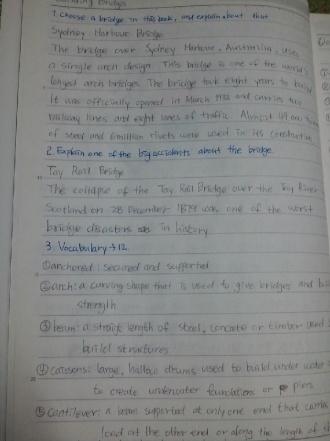 Bridges
1. Choose a bridge in this book, and explain about that
Sydney Harbour Bridge
The bridge over Sydney Harbour, Australia, uses
a single arch design. This bridge is one of the world's
longest arch bridges. The bridge took eight years to build
It was officially opened in March 1932 and carries two
railway lines and eight lanes of traffic. Almost
of steel and 6 million rivets were used in its construction
2. Explain one of the big accidents about the bridge.
Tay Rail Bridge
The collapse of the Tay Rail Bridge over the Tay River
Scotland on 28 December 1879 was one of the worst
bridge disasters in history.
3. Vocabulary → 12.
① anchored: secured and supported
② arch: a curving shape that is used to give bridges and
strength
③ beam: a straight length of steel, concrete or timber used
build structures
④ caissons: large, hollow drums used to build under water
to create underwater foundations or piers
⑤ cantilever: a beam supported at only one end that carries
load at the other end or along the length of